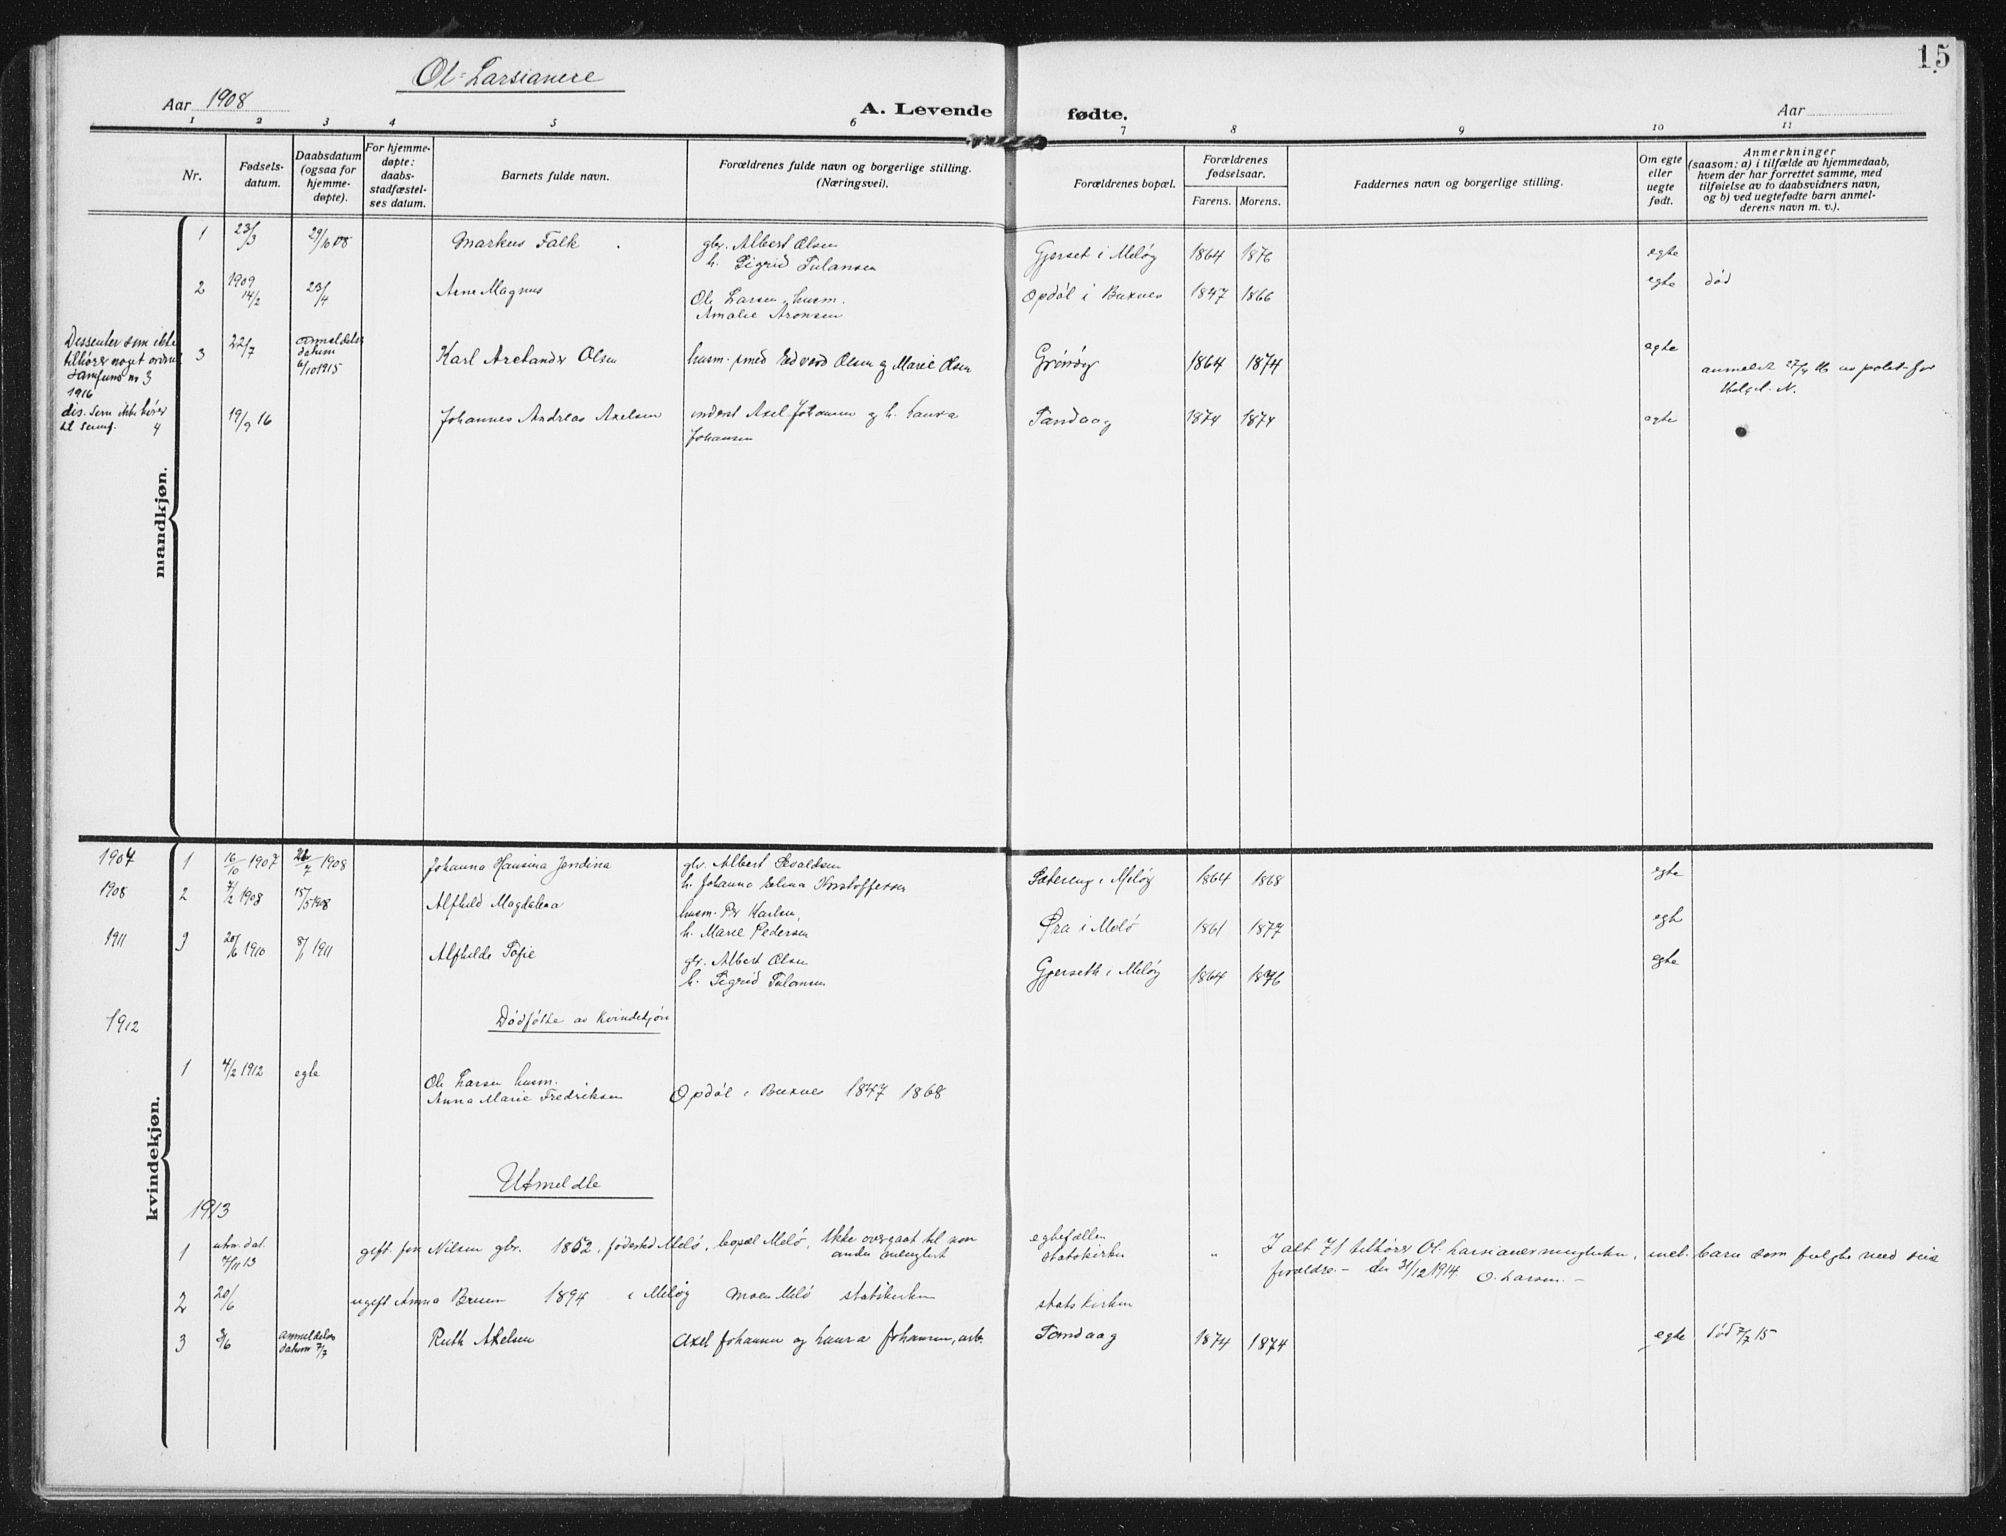 15
Ol-Larsianere
Aar 1908
A. Levende fødte.
Aar
1 2 3 4 5 6 7 8 9 10 11
Nr.
Fødsels-
datum.
Daabsdatum
(ogsaa for
hjemme-
døpte).
For hjemme-
døpte:
daabs-
stadfæstel-
ses datum.
Barnets fulde navn.
Forældrenes fulde navn og borgerlige stilling.
(Næringsvei).
Forældrenes bopæl.
Forældrenes
fødselsaar.
Farens. Morens.
Faddernes navn og borgerlige stilling.
Om egte
eller
uegte
født.
Anmerkninger
(saasom: a) i tilfælde av hjemmedaab,
hvem der har forrettet samme, med
tilføielse av to daabsvidners navn,
og b) ved uegtefødte barn anmel-
derens navn m. v.).
mandkjøn.
1 23/3 29/6 08 Markus Falk gbr. Albert Olsen Gjerset i Meløy 1864 1876 egte
h. Sigrid Tulansen
2 1909 14/2 23/4 Arne Magnus Ole Larsen, husm. Opdøl i Buxnes 1847 1866 egte død
Amalie Aronsen
Dessenter som ikke
tilhører noget ordnet
samfund nr 3
1916
3 22/7 anmeldelses
datum
6/10 1915
Karl Arelander Olsen husm. smed Edvard Olsen og Marie Olsen Grønøy 1864 1874 egte
anmeldt 27/4 16
dis. som ikke hører
til samf. 4
19/9 16 Johannes Andreas Axelsen inderst Axel Johansen og h. Laura Tandaag 1874 1874 egte
Johansen
kvindekjøn.
1907 1 16/10 1907 26/7 1908 Johanna Hansina Jendina gbr. Albert Sivaldsen Sætereng i Meløy 1864 1868 egte
h. Johanna Elina Kristoffersen
1908 2 7/2 1908 15/5 1908 Alfhild Magdalena husm. Per Karlsen, Øra i Melø 1861 1877 egte
h. Marie Pedersen
1911 3 20/6 1910 8/1 1911 Alfhilde Sofie gbr. Albert Olsen Gjerseth i Meløy 1864 1876 egte
h. Sigrid Tulansen
1912 Dødfølte av Kvindekjøn
1 4/2 1912 egte Ole Larsen husm. Opdøl i Buxnes 1847 1868
Anna Marie Fredriksen
Utmeldte
1913
1 utm. dat. 7/11 13 gift. Nilsen gbr. 1852, fødested Melø, bopæl Melø, Ikke overgaat til non egtefællen
anden menighet statskirken "
I alt 71 tilhører Ol. Larsianermenigheten, inel. barn som fulgte med sine
forældre. - den 31/12 1914. O. Larsen. -
2 20/6 ugift Anna Bresen 1894 i Meløy Moen Melø statskirken statskirken
3 3/6 anmeldelses
datum 7/7
Ruth Axelsen Axel Johansen og Laura Johansen, arb. Tandaag 1874 1874 egte død 7/7 15